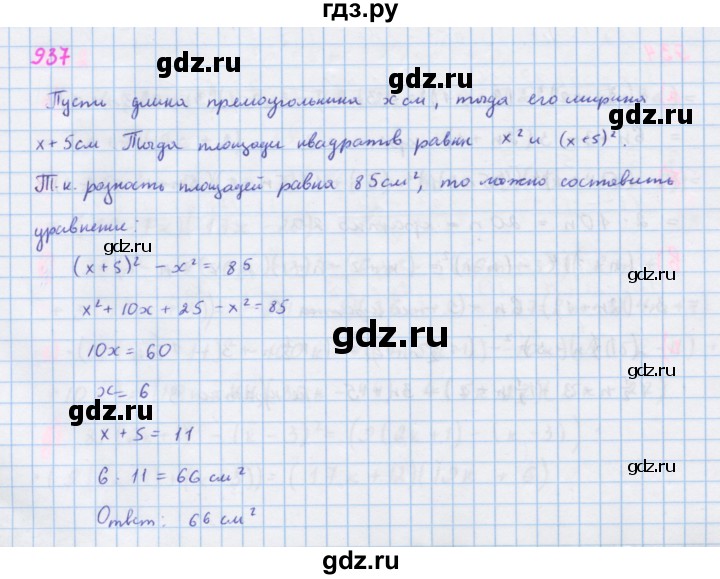 гдз.ру
937
gdz.ru gdz.ru
Пусть длина прямоугольника x см, тогда его ширина
gdz.ru
x + 5 см Тогда площади квадратов равны x² и (x+5)².
Т.к. разность площадей равна 85 см², то можно составить
уравнение:
gdz.ru gdz.ru
(x+5)² - x² = 85
x² + 10x + 25 - x² = 85
gdz.ru
10x = 60
gdz.ru
x = 6
gdz.ru
gdz.ru
x + 5 = 11
gdz.ru
6 · 11 = 66 см²
Ответ: 66 см²
gdz.ru
gdz.ru